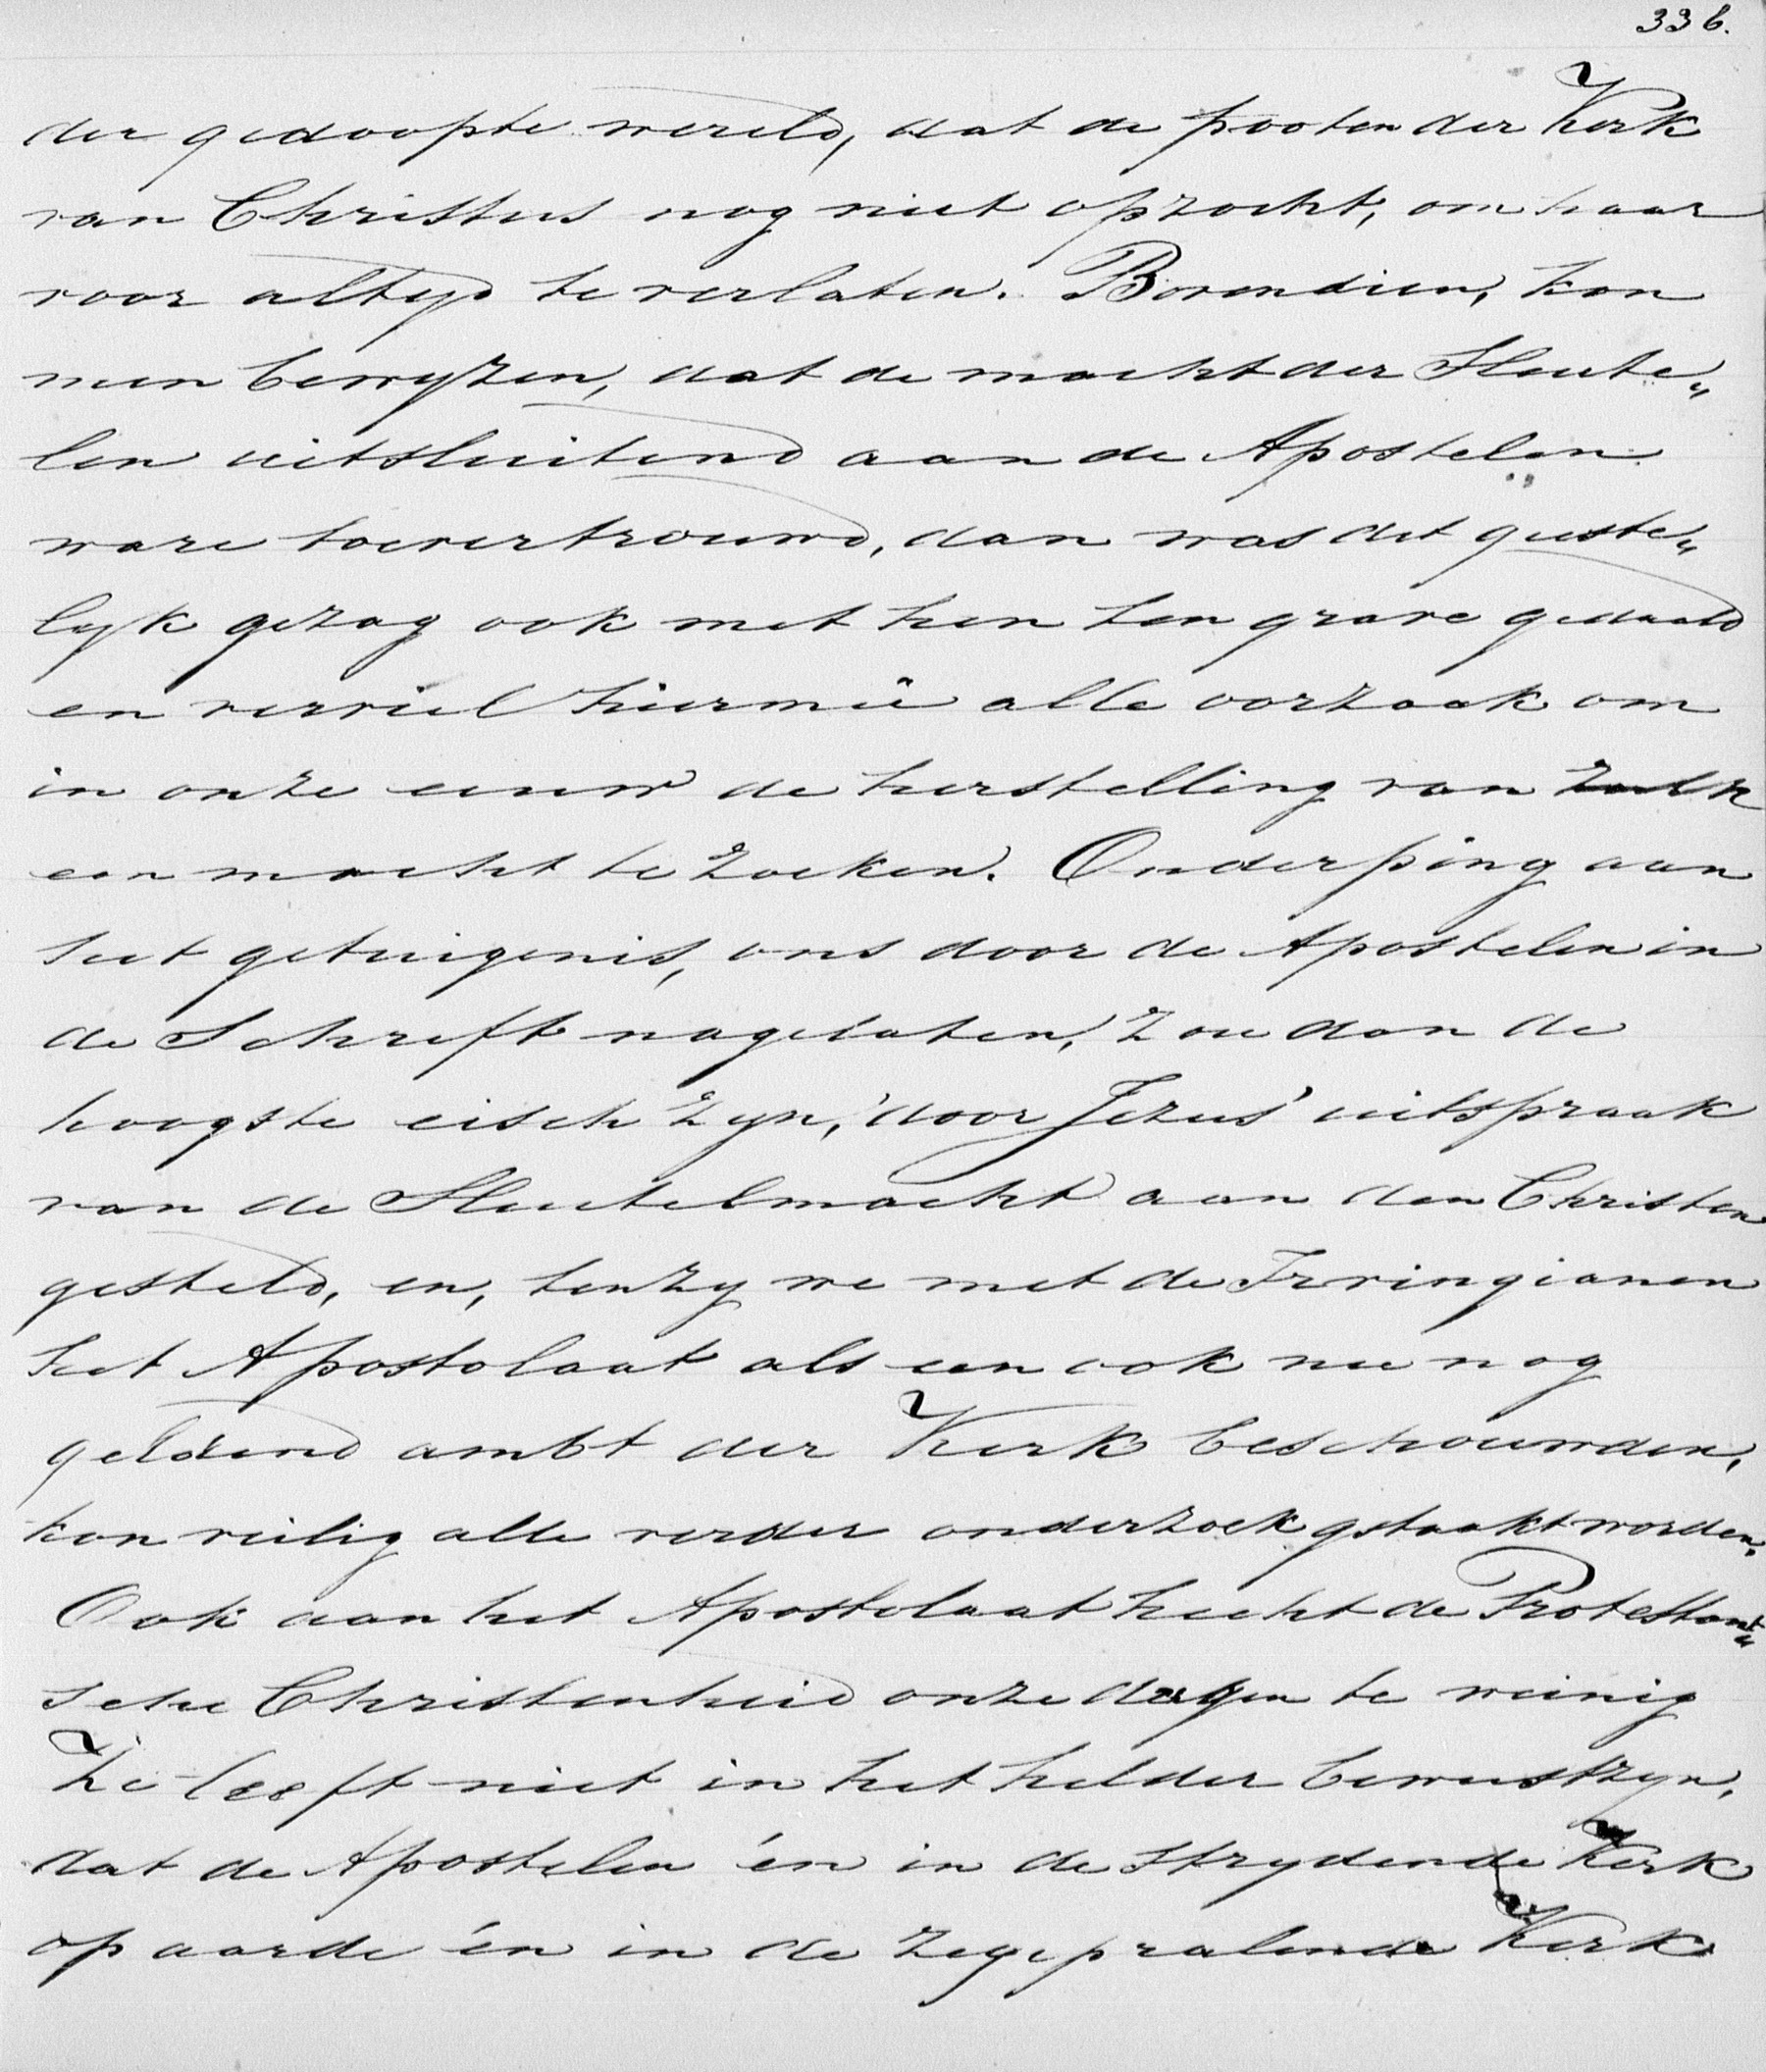 336.
der gedoopte wereld, dat de pooten der Kerk
van Christus nog niet opzocht, om haar
voor altyd te verlaten. Bovendien, kon
men bewyzen, dat de macht der Sleute„
len uitsluitend aan de Apostelen
ware toevertrouwd, dan was dit geeste„
lyk gezag ook met hen ten grave gedaald
en verviel hiermeê alle oorzaak om
in onze eeuw de herstelling van zulk
een macht te zoeken. Onderping aan
het getuigenis, ons door de Apostelen in
de Schrift nagelaten, zou dan de
hoogste eisch zyn, door Jezus' uitspraak
van de Sleutelmacht aan den Christen
gesteld, en, tenzy we met de Irvingianen
het Apostolaat als een ook nu nog
geldend ambt der Kerk beschouwden,
kon veilig alle verder onderzoek gstaakt worden.
Ook aan het Apostolaat hecht de Protestant„
sche Christenheid onze dagen te weinig
Ze leeft niet in het helder bewustzyn,
dat de Apostelen én in de strydende Kerk
op aarde én in de zegepralende Kerk